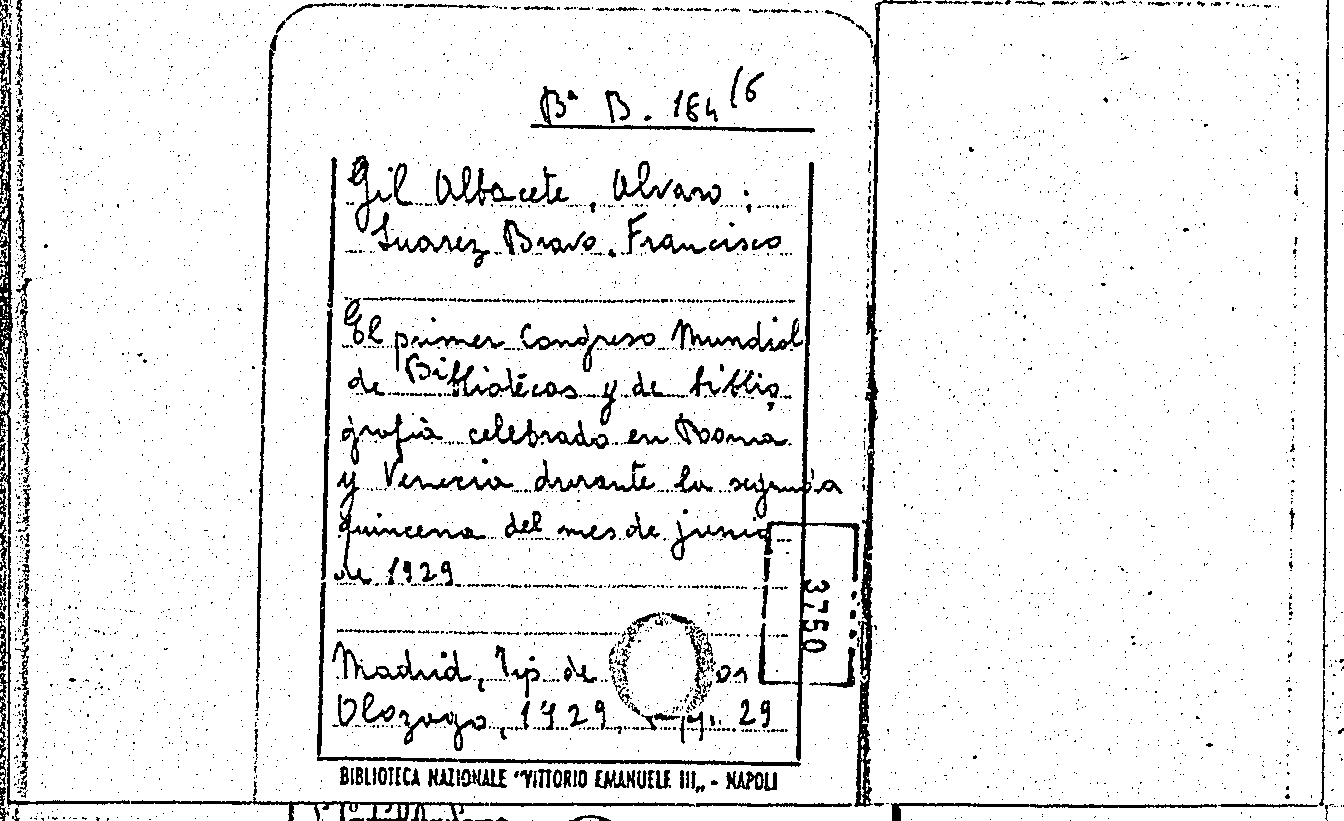 Bª B. 164/6
Gil Albacete, Alvaro;
Suarez Bravo, Francisco
El primer Congreso Mundial
de Bibliotécas y de biblio,
grafià celebrado en Roma
y Venecia durante la segunda
quincena del mes de junio
de 1929
Madrid, Tip de
Olozaga, 1929, 29
3750
BIBLIOTECA NAZIONALE "VITTORIO EMANUELE III„ - NAPOLI